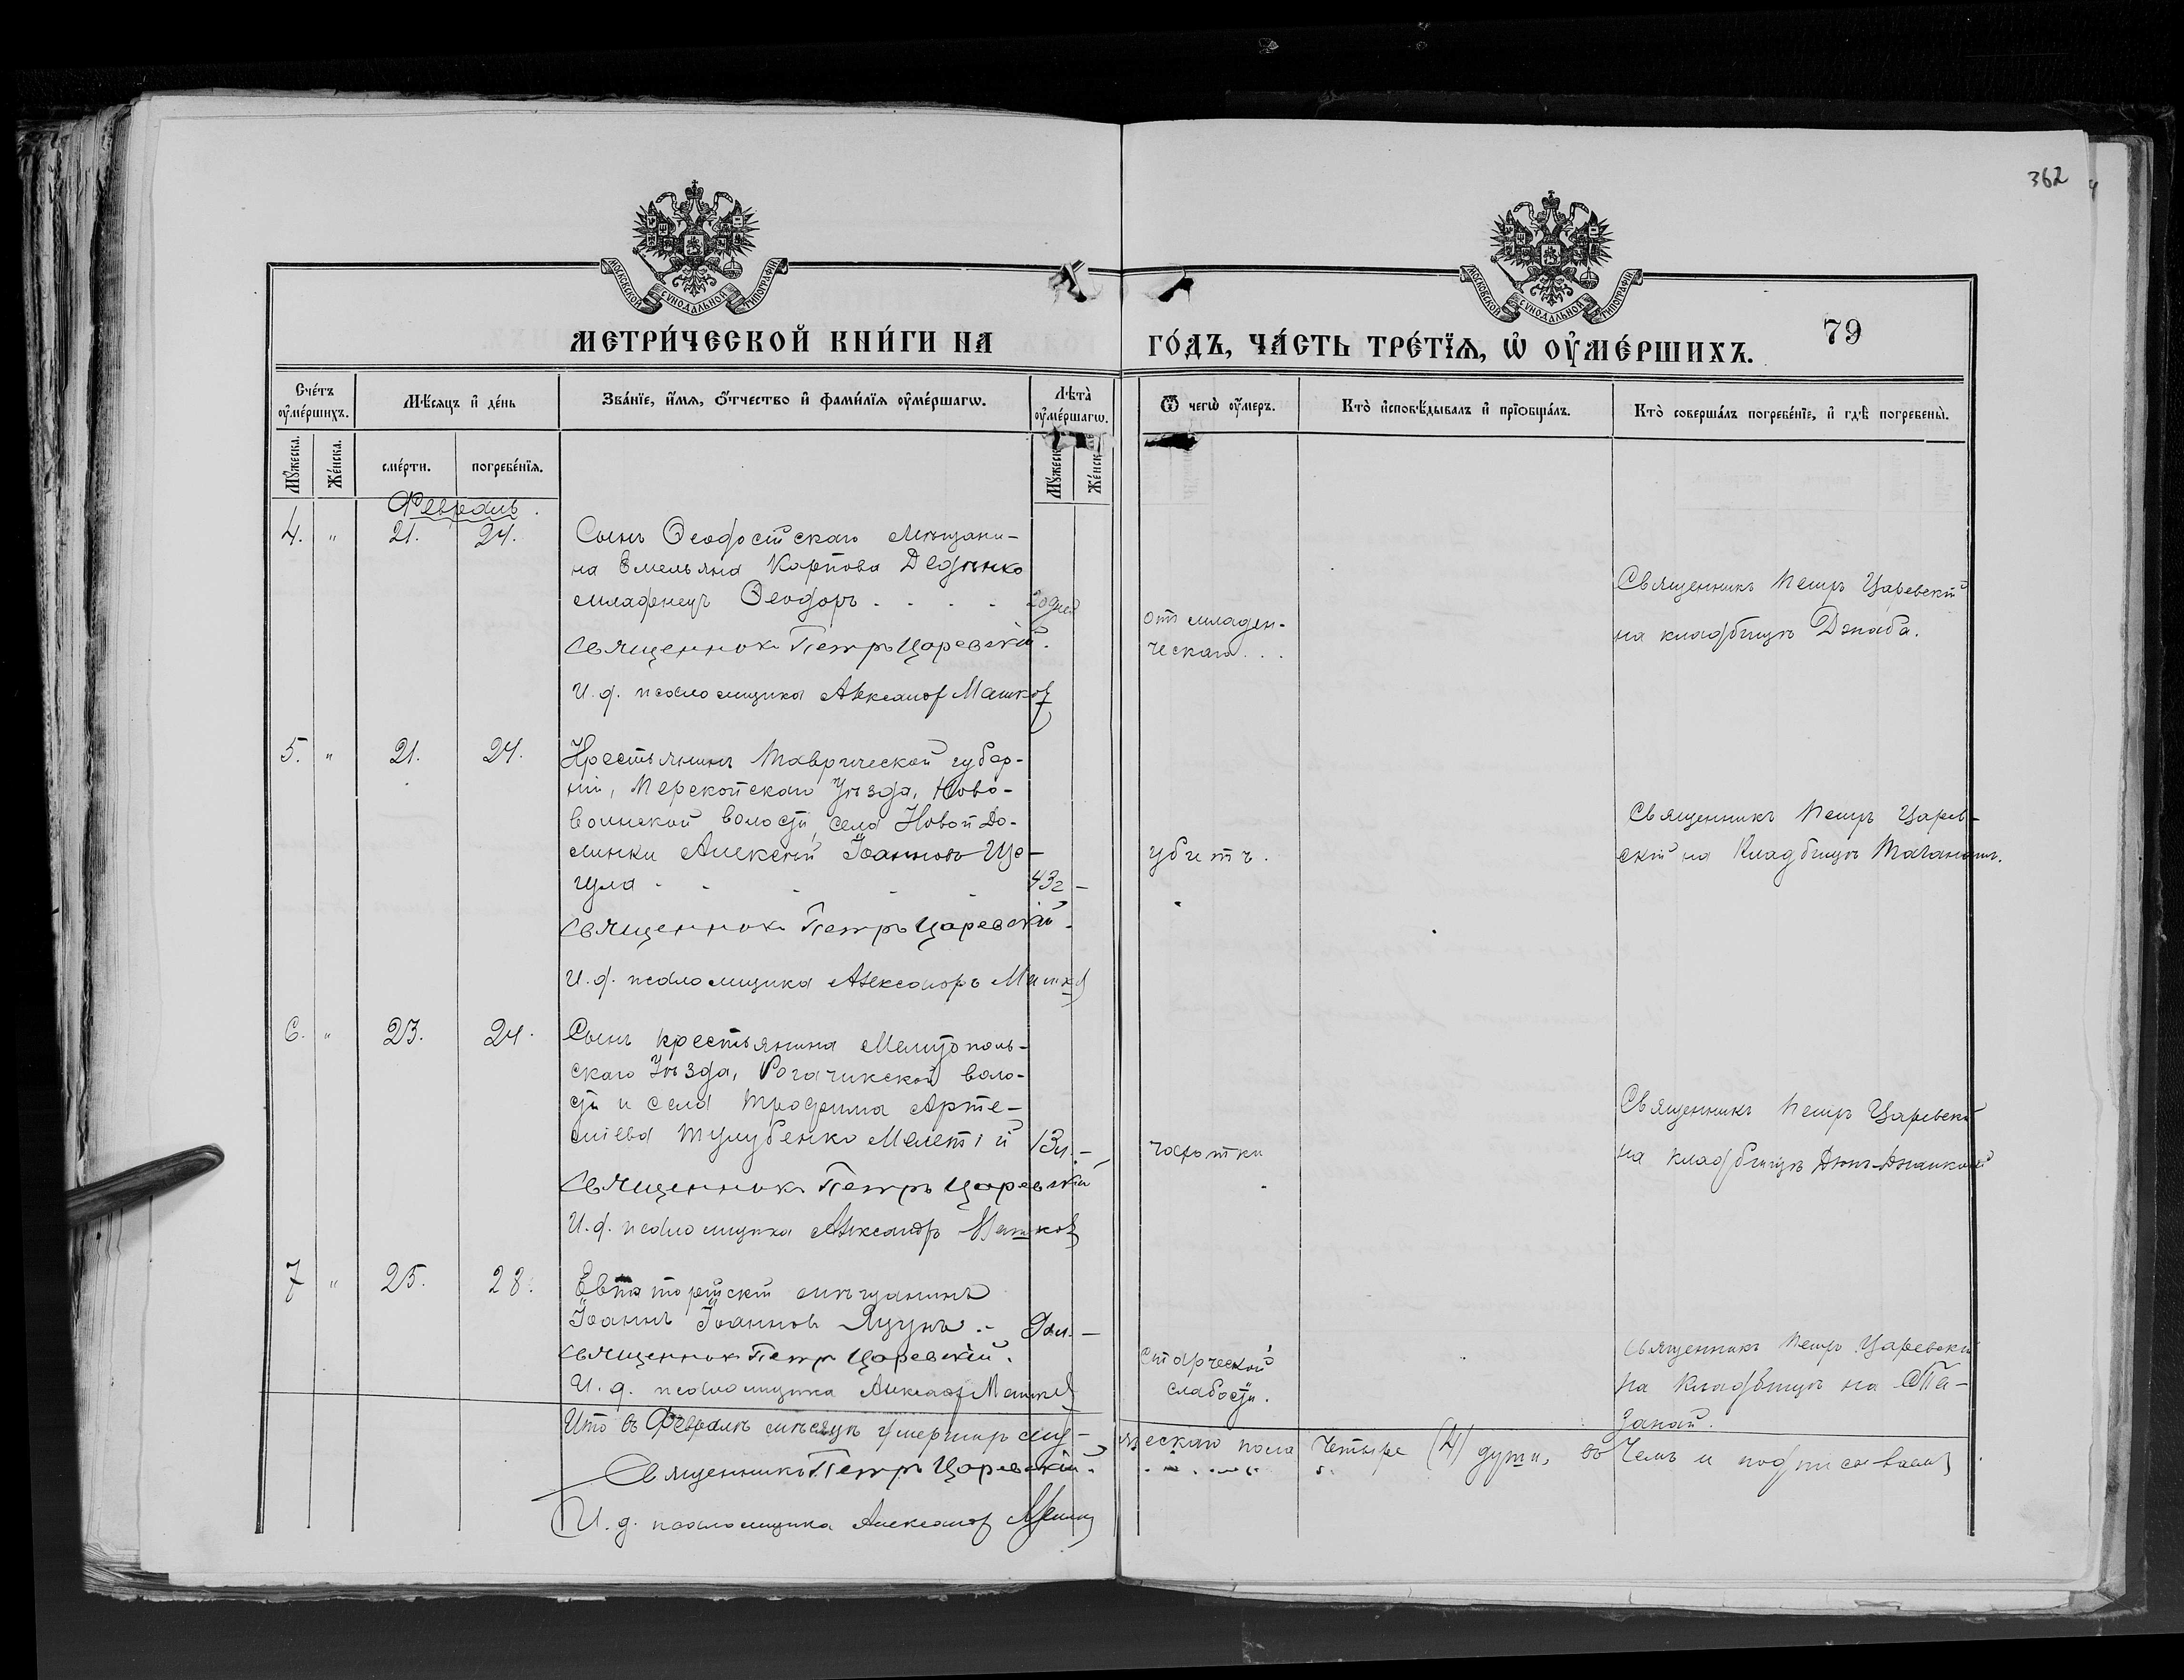 362
МОСКОВСКОЙ СѴНОДАЛЬНОЙ ТИПОГРАФІИ
МОСКОВСКОЙ СѴНОДАЛЬНОЙ ТИПОГРАФІИ
МЕТРИ́ЧЕСКОЙ КНИ́ГИ НА
ГО́ДЪ, ЧА́СТЬ ТРЕ́ТІѦ, Ѡ҆ ОУ҆МЕ́РШИХЪ.
79
Сче́тъ оу҆ме́ршихъ.
Мѣ́сяцъ и҆ де́нь
Зва́нїе, и҆́мѧ, ѻ҆́тчество и҆ фами́лїѧ оу҆ме́ршагѡ.
Лѣ́та̀ оу҆ме́ршагѡ.
Ѿ чегѡ̀ оу҆́меръ.
Кто̀ и҆сповѣ́дывалъ и҆ прїѡбща́лъ.
Кто̀ соверша́лъ погребе́нїе, и҆ гдѣ̀ погребены̀.
Мꙋ́жеска.
Же́нска.
сме́рти.
погребе́нїѧ.
Мꙋ́жеск
Же́нск
Февраль.
4. " 21. 24.
Сынъ Ѳеодосійскаго мѣщани-
на Емельяна Карпова Дедѣнко
младенецъ Ѳеодоръ . . . . 20 дней
Священникъ Петръ Царевскій.
И. д. псаломщика Александръ Машков
отъ младен-
ческаго . . .
Священникъ Петръ Царевскій
на кладбищѣ Джаба.
5. " 21. 24.
Крестьянинъ Таврической губер-
ніи, Перекопскаго Уѣзда, Ново-
воинской волости, села Новой До-
линки Алексѣй Іоанновъ Ще-
гула - - - - - 43 г -
Священникъ Петръ Царевскій.
И. д. псаломщика Александръ Машков
убитъ.
Священникъ Петръ Царев-
скій на Кладбищѣ
6. " 23. 24.
Сынъ крестьянина Мелитополь-
скаго Уѣзда, Рогачикской воло-
сти и села Трофима Арте-
міева Тулубенко Мелетій 13 л. -
Священникъ Петръ Царевскій
И. д. псаломщика Александръ Машков
чахотки
Священникъ Петръ Царевскій
на кладбищѣ
7 " 25. 28.
Евпаторійскій мѣщанинъ
Іоаннъ Іоанновъ Яцунъ . -
Священникъ Петръ Царевскій.
И. д. псаломщика Александръ Машков
старческой
слабости.
Священникъ Петръ Царевскій
на Кладбищѣ на
Что въ Февралѣ мѣсяцѣ умершихъ му-
жескаго пола Четыре (4) души, въ чемъ и подписываемъ
Священникъ Петръ Царевскій.
И. д. псаломщика Александръ Машков